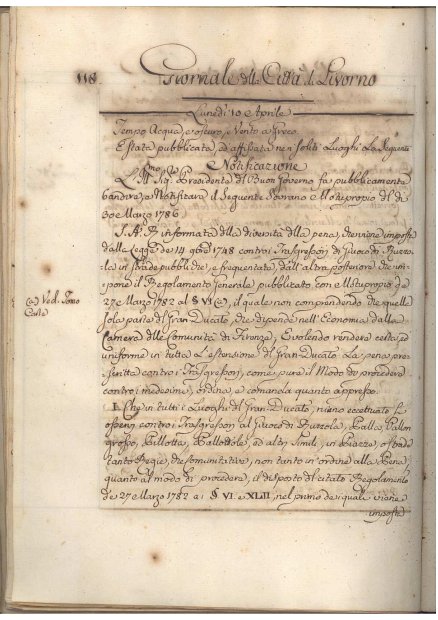 118
Giornale della Città di Livorno
Lunedì 10 Aprile
Tempo Acqua, e oscuro, e Vento a Greco.
È stata pubblicata, ed affissata nei soliti Luoghi La Seguente
Notificazione
Presidente del Buon Governo fa pubblicamente
bandire, e Notificare il Seguente Sovrano e Motuproprio del dì
30 e Marzo 1786
S. A. R. informata della diversità della pena, che viene imposta
dalla Legge de 14 9bre 1748 contro i Trasgressori del Giuoco di Ruzzo-
la in strade pubbliche, e frequentate, dall'altra posteriore che im-
pone il Regolamento Generale pubblicato con Motuproprio de
27 e Marzo 1782 al § VI (a), il quale non comprendendo che quella
sola parte del Gran Ducato, che dipende nell'Economia dalla
Camera delle Comunità di Firenze; E volendo rendere esta, ed
uniforme in tutta L'estensione del Gran Ducato La pena pre-
scritta contro i Trasgressori, come pure il Modo di procedere
contro i medesimi, ordina, e comanda quanto appresso.
(a) Ved. Tomo
I. Che in tutti i Luoghi del Gran Ducato, niuno eccettuato si
osservi contro i Trasgressori al Giuoco di Ruzzola, Palla, Pallon
grosso, Pillotta, Pallottole, ed altri simili, in Piazze, o strade
tanto Regie, che comunitative, non tanto in ordine alla Pena,
quanto al modo di procedere, il disposto del citato Regolamento
de 27 e Marzo 1782 ai § VI. e XLII, nel primo de quali viene
imposta